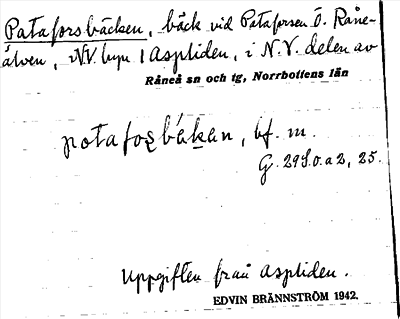 Pataforsbäcken, bäck vid Pataforsen Ö. Råne-
älven, NV. byn i Aspliden, i N.V. delen av
Råneå sn och tg, Norrbottens län
patafoʂbäkan, bf. m.
G. 29 S.o.a 2, 25.
Uppgiften från Aspliden.
EDVIN BRÄNNSTRÖM 1942.